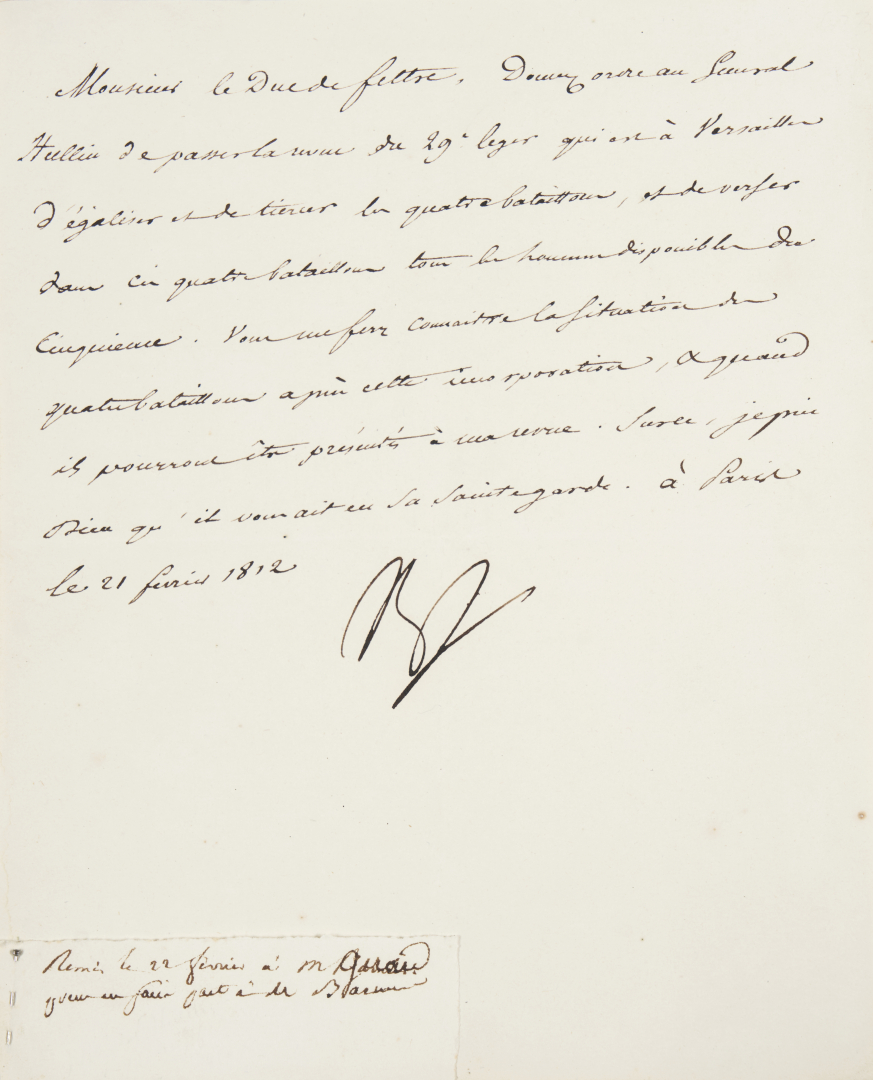 Monsieur le Duc de feltre, Donnez ordre au Général
Hullin de passer la revue du 29e leger qui est à Versailles
d'égaliser et de tiercer les quatre bataillons, et de verser
dans ces quatre bataillons tous les hommes disponibles du
Cinquieme. Vous me ferez connaitre la situation des
quatre bataillons après cette incorporation, & quand
ils pourront être présentés à ma revue. Sur ce, je prie
Dieu qu'il vous ait en sa sainte garde. à Paris
le 21 fevrier 1812
Remis le 22 février à M
pour en faire part à Mr